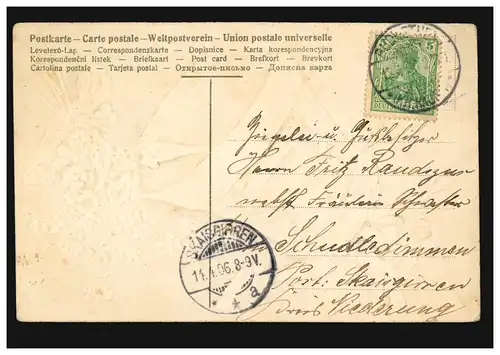 Postkarte — Carte postale — Weltpostverein — Union postale universelle
Levelező-Lap — Correspondenzkarte — Dopisnice — Karta korespondencyjna
Korespondenční lístek — Briefkaart — Post card — Brefkort — Brevkort
Cartolina postale — Tarjeta postal — Открытое письмо — Дописна карта
5
Ziegelei- u. Gutsbesitzer
Herrn Fritz
nebst Fräulein Schwester
in Schudledimmen
Post: Skaisgirren
Kreis Niederung
SKAISGIRREN
11.4.06.8-9V.
* * a